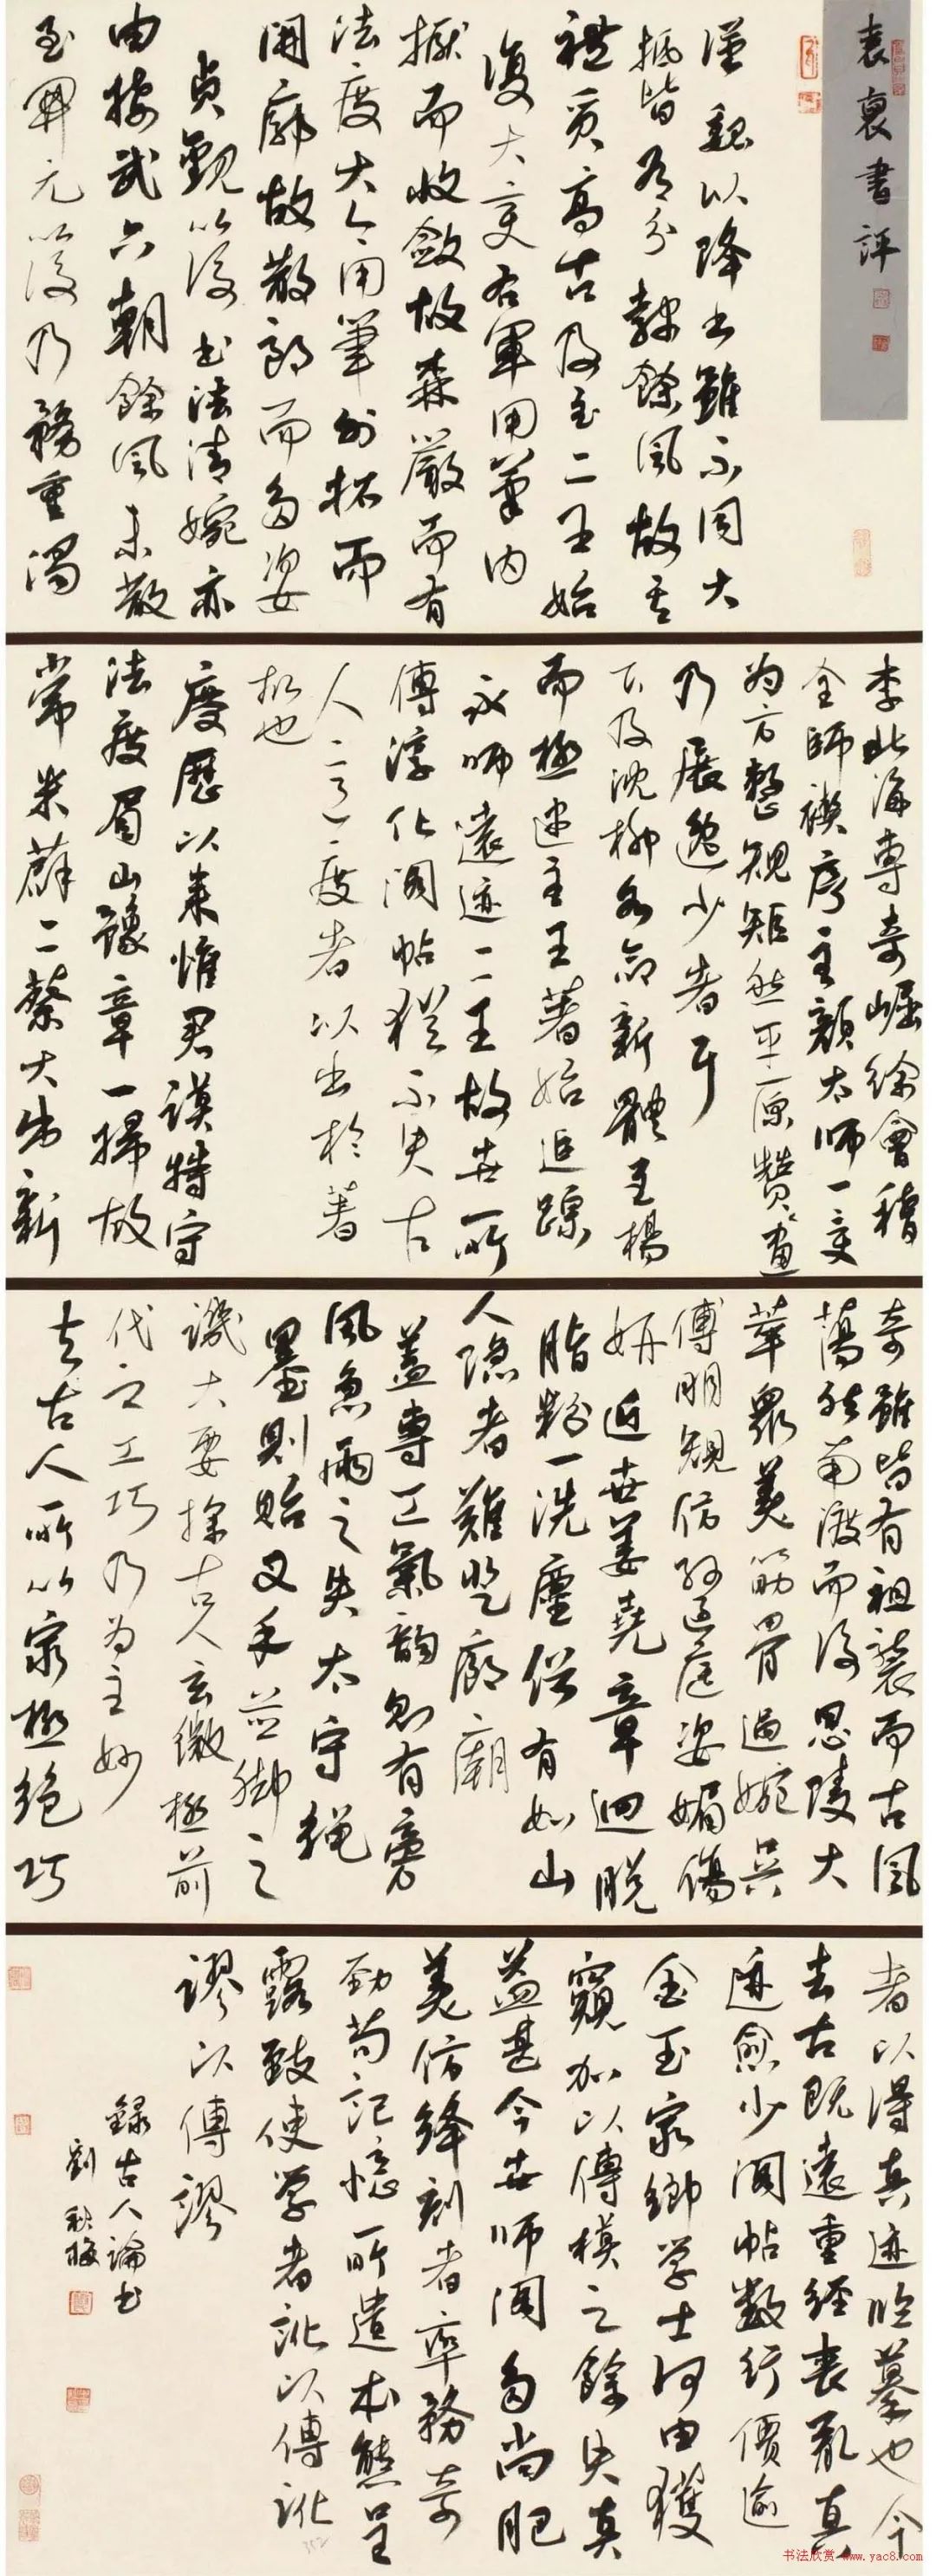 袁裒書評
漢魏以降書雖不同大
抵皆有分隸餘風故其
禮質高古及至二王始
復大變右軍用筆內
擫而收斂故森嚴而有
法度大令用筆外拓而
開廓故散朗而多姿
貞觀以後書法清婉亦
由接武六朝餘風未散
至開元以後乃務重濁
李北海專奇崛徐會稽
全師禊序至顏太師一變
為方整規矩然平原贊畫
乃展逸少者耳
下及沈柳各命新體至楊
而極逮至王著始追蹤
永師遠迹二王故世所
傳淳化閣帖猶不失古
人之意度者以出於著
故也
慶歷以來惟君謨特守
法度眉山豫章一掃故
常米薛二蔡大出新
奇雖皆有祖襲而古風
蕩然南渡而後思陵大
萃眾美筋骨過婉吳
傅朋規仿孫過庭姿媚傷
妍近世姜堯章迥脫
脂粉一洗塵俗有如山
人隱者難登廊廟
蓋專工氣韻則有旁
風急雨之失太守繩
墨則貽叉手並腳之
譏大要探古人玄微極前
代之工巧乃為至妙
夫古人所以家極絕巧
者以得真迹臨摹也今
去古既遠重經喪亂真
迹愈少閣帖數行價逾
金玉家鄉學士何由獲
窺加以傳模之餘失真
益甚今世師閣多尚肥
美仿絳刻者率務奇
勁苟記憶所遺本態呈
露致使學者訛以傳訛
謬以傳謬
錄古人論書
劉秋梅
书法欣赏 www.yac8.com